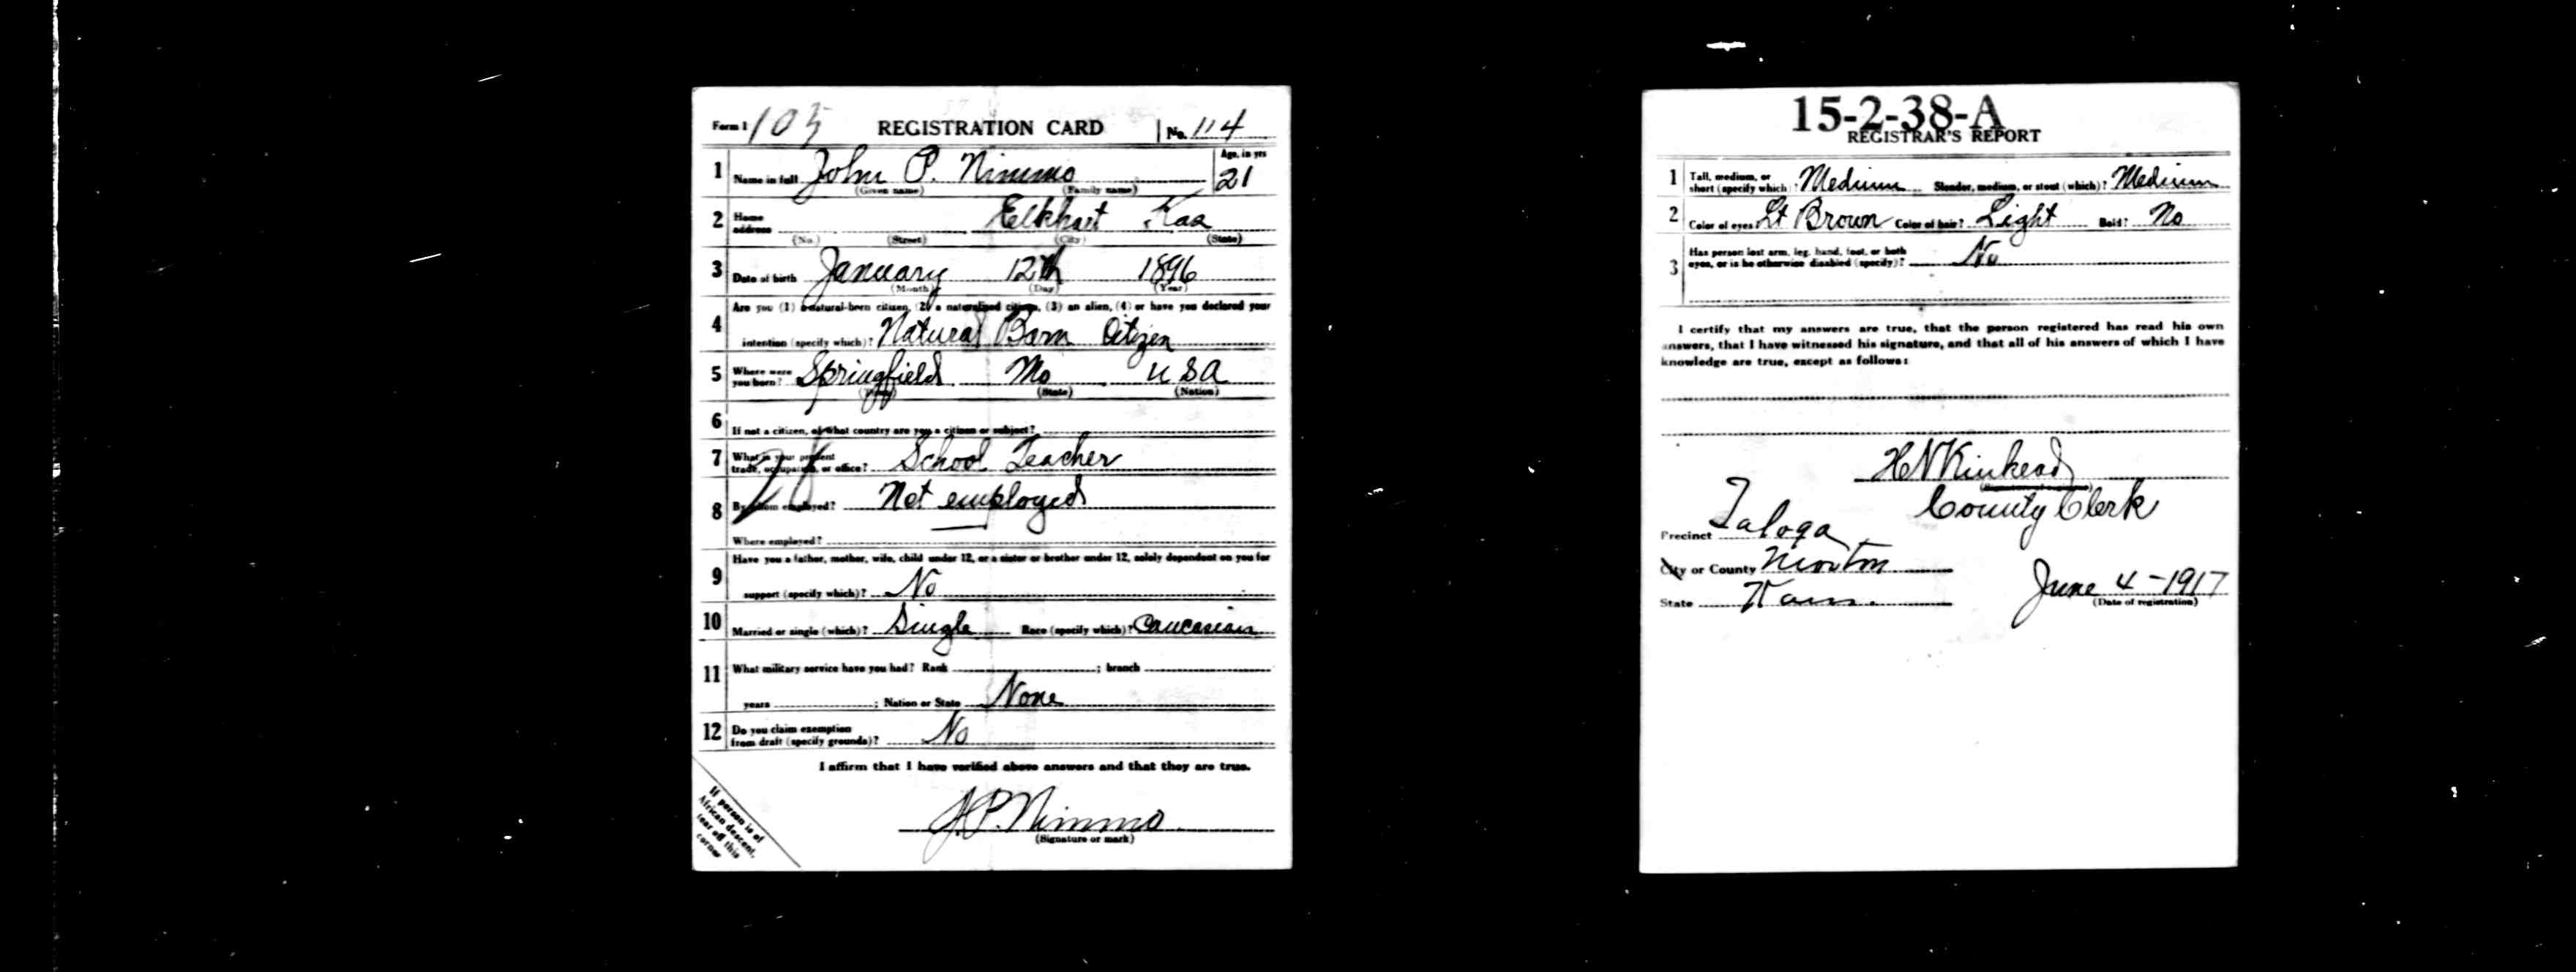 Form 1 105 REGISTRATION CARD No. 114
1 Name in full John P. Nimmo Age, in yrs 21
(Given name) (Family name)
2 Home address Elkhart Kas
(No.) (Street) (City) (State)
3 Date of birth January 12th 1896
(Month) (Day) (Year)
4 Are you (1) a natural-born citizen, (2) a naturalized citizen, (3) an alien, (4) or have you declared your
intention (specify which)? Natural Born Citizen
5 Where were you born? Springfield Mo USA
(Town) (State) (Nation)
6 If not a citizen, of what country are you a citizen or subject?
7 What is your present trade, occupation, or office? School Teacher
8 By whom employed? Not employed
Where employed?
9 Have you a father, mother, wife, child under 12, or a sister or brother under 12, solely dependent on you for
support (specify which)? No
10 Married or single (which)? Single Race (specify which)? Caucasian
11 What military service have you had? Rank ; branch
years ; Nation or State None
12 Do you claim exemption from draft (specify grounds)? No
I affirm that I have verified above answers and that they are true.
J.P. Nimmo
(Signature or mark)
If person is of
African descent,
tear off this
corner
15-2-38-A
REGISTRAR'S REPORT
1 Tall, medium, or short (specify which)? Medium Slender, medium, or stout (which)? Medium
2 Color of eyes Lt Brown Color of hair? Light Bald? No
3 Has person lost arm, leg, hand, foot, or both
eyes, or is he otherwise disabled (specify)? No
I certify that my answers are true, that the person registered has read his own
answers, that I have witnessed his signature, and that all of his answers of which I have
knowledge are true, except as follows:
H N Kinkead
County Clerk
Precinct Taloga
City or County Morton
State Kans. June 4-1917
(Date of registration)